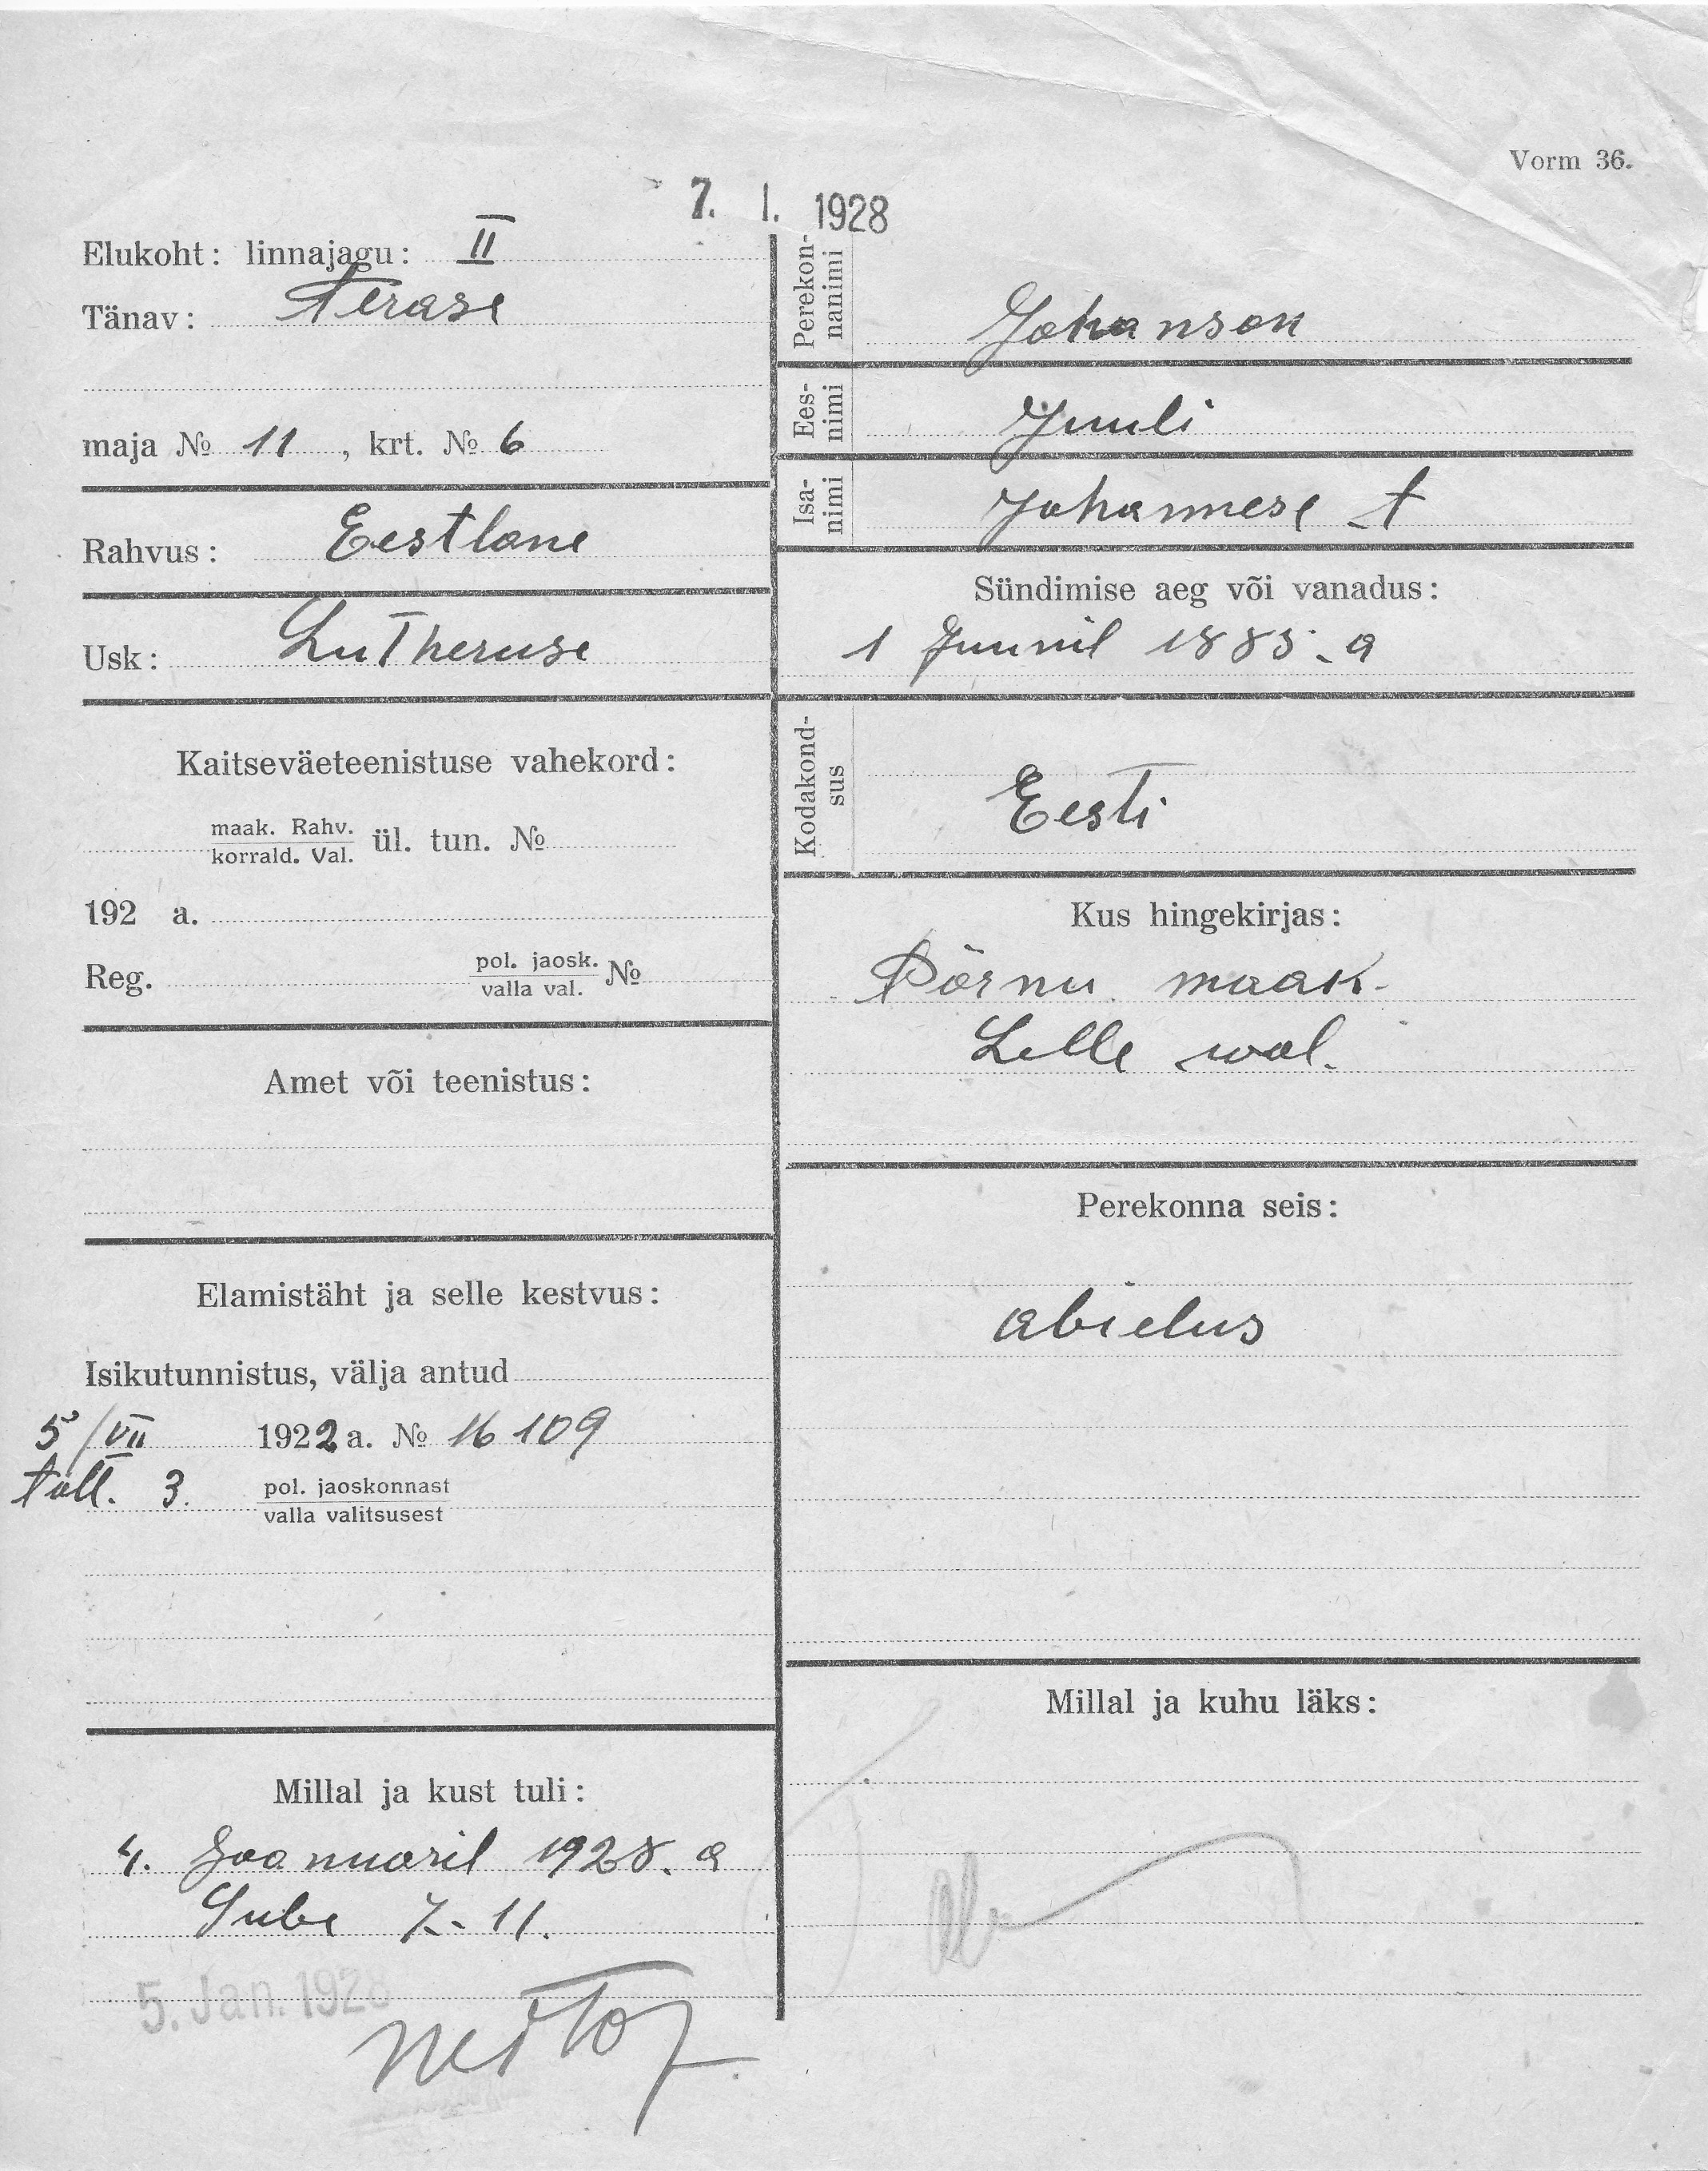 Vorm 36.
7. 1. 1928
Elukoht: linnajagu: II
Tänav: Terase
maja № 11, krt. № 6
Rahvus: Eestlane
Usk: Lutheruse
Kaitseväeteenistuse vahekord:
maak. Rahv.
korrald. Val. ül. tun. №
192 a.
Reg. pol. jaosk.
valla val. №
Amet või teenistus:
Elamistäht ja selle kestvus:
Isikutunnistus, välja antud
5/VII 1922 a. № 16109
Tall. 3. pol. jaoskonnast
valla valitsusest
Millal ja kust tuli:
4. Jaanuaril 1928. a
7-11.
5. Jan. 1928
Perekon-
nanimi
Johanson
Ees-
nimi
Juuli
Isa-
nimi
Johannese t
Sündimise aeg või vanadus:
1 Juunil 1885. a
Kodakond-
sus
Eesti
Kus hingekirjas:
Pärnu maak.
Lelle wal.
Perekonna seis:
abielus
Millal ja kuhu läks: